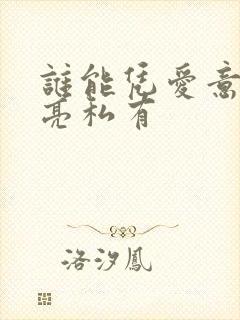 誰能凭愛意
亮私有
洛汐鳳